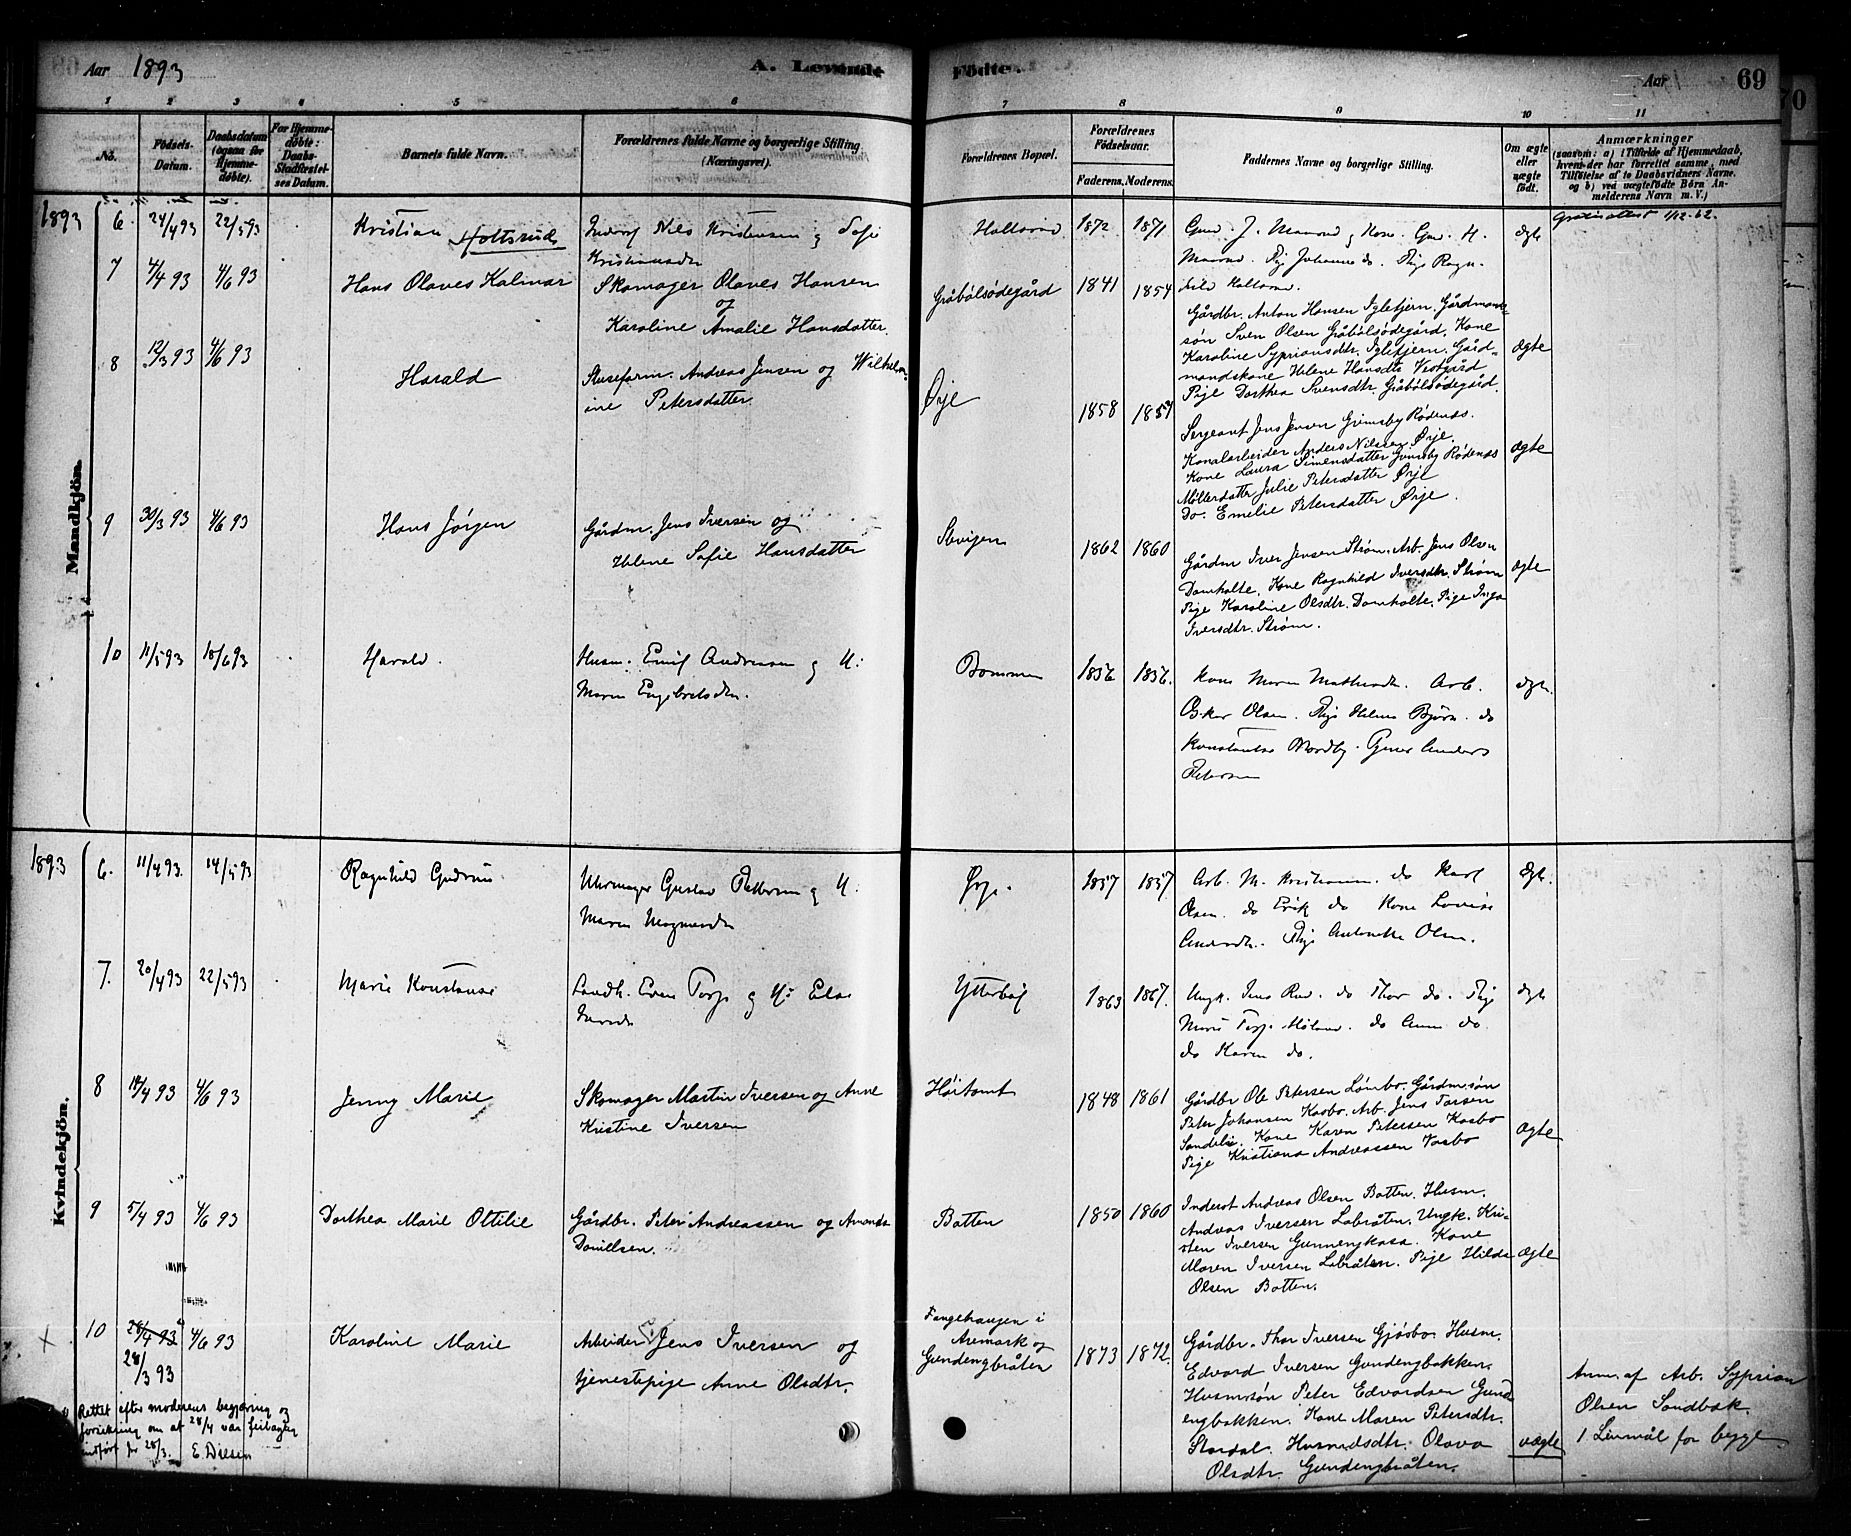 Aar 1893
A. Levende
Fødte.
Aar
69
70
1 2 3 4 5 6 7 8 9 10 11
No.
Fødsels-Datum.
Daabsdatum (ogsaa for Hjemmedøbte).
For Hjemmedøbte: Daabs-Stadfæstelses Datum.
Barnets fulde Navn.
Forældrenes fulde Navne og borgerlige Stilling (Næringsvei).
Forældrenes Bopæl.
Forældrenes Fødselsaar.
Faderens. Moderens.
Faddernes Navne og borgerlige Stilling.
Om ægte eller uægte født.
Anmærkninger
(saasom: a) i Tilfælde af Hjemmedaab, hvem der har forrettet samme, med Tilføielse af to Daabsvidners Navne. og b) ved uægtefødte Børn Anmelderens Navn m. V.)
Mandkjön.
1893 6. 24/4 93 22/5 93 Kristian Holtsrud
Inderst Nils Kristensen og Sofi
Kristiansdtr
Holtsrud 1872 1871
ægte
Gratis attest 1/12-62.
7 4/4 93 4/6 93 Hans Olaves Kalmar
Skomager Olaves Hansen
og
Karoline Amalie Hansdatter.
Gråbölsödegård 1841 1854
Gårdbr. Anton Hansen Igletjern. Gårdmands-
søn Sven Olsen Gråbölsödegård. Kone
Karoline Syprionsdtr. Igletjern. Gård-
mandskone Helene Hansdtr Vestgård
Pige Dorthea Svensdtr. Gråbölsödegård.
Ægte
8 12/3 93 4/6 93 Harald
Sluseform. Andreas Jensen og Wilhelm-
ine Petersdatter.
Ørje 1858 1857
Sergeant Jens Jensen Grimsby Rødenæs.
Kanalarbeider Anders Nilssen Ørje.
Kone Laura Simensdatter Grimsby Rødenæs
Møllerdatter Julie Petersdatter Ørje
Do. Emelie Petersdatter Ørje.
Ægte
9 30/3 93 4/6 93 Hans Jørgen
Gårdm. Jens Iversen og
Helene Sofie Hansdatter
1862 1860
Gårdm Iver Jensen Strøm. Arb. Jens Olsen
Damholte. Kone Ragnhild Iversdtr. Strøm
Pige Karoline Olsdtr. Damholte. Pige Inga
Iversdtr. Strøm.
Ægte
10 11/5 93 18/6 93 Harald.
Husm. Emil Andresen og H:
Maren Engebretsdtr.
Bommen 1856 1856.
Kone Maren Mathisdtr. Arb.
Oskar Olsen. Pige Helene Bjørn. do
Konstanse Nordby. Anders
Petersen
ægte.
Kvindekjön.
1893 6. 11/4 93. 14/5 93 Ragnhild Gudrun
Uhrmager Gustav Pettersen og H:
Maren Magnusdtr
Ørje. 1857 1857
Arb. M. Kristiansen. do Karl
Olsen. do Erik do Kone Lovise
Andersdtr. Pige Antonette Olsen.
Ægte.
7. 20/4 93 22/5 93 Marie Konstanse
Landh. Even Torp og H:
Ytterbøl 1863 1867.
Ungk. Jens Rud. do Thor do. Pige
Marie Torp. do do
do Karen do.
ægte
8 14/4 93 4/6 93 Jenny Marie
Skomager Martin Iversen og Anne
Kristine Iversen
Høitomt 1848 1861
Gårdbr Ole Petersen Lömbo. Gårdm.søn
Peter Johansen Kasbo. Arb. Jens Tarsen
Sandelie. Kone Karen Petersen Kasbo
Pige Kristiana Andreassen Vasbo
Ægte
9 5/4 93 4/6 93 Dorthea Marie Ottilie
Gårdbr. Peter Andreassen og Amanda
Danillsen.
Botten 1850 1860
Inderst Andreas Olsen Botten. Husm.
Andreas Iversen Labråten. Ungk. Kri-
sten Iversen Gunnengkasa. Kone
Maren Iversen Labråten. Pige Hilda
Olsen Botten.
Ægte
10 28/4 93 28/3 93 4/6 93 Karoline Marie
Arbeider Jens Iversen og
tjenestepige Anne Olsdtr.
Fangehaugen i
Aremark og
Gundengbråten
1873 1872.
Gårdbr. Thor Iversen Gjøsbo. Husm.
Edvard Iversen Gundengbakken.
Husmsøn Peter Edvardsen Gund-
engbakken. Kone Maren Petersdtr.
Stordal. Husmdsdtr. Olava
Olsdtr. Gundengbråten.
uægte
Anm. af Arb. Syprian
Olsen Sandbæk.
1. Leiermål for begge
Rettet efter moderens begjæring og
forsikring om at 28/4 var feilagtig
indført for 28/3. E. Nilsen